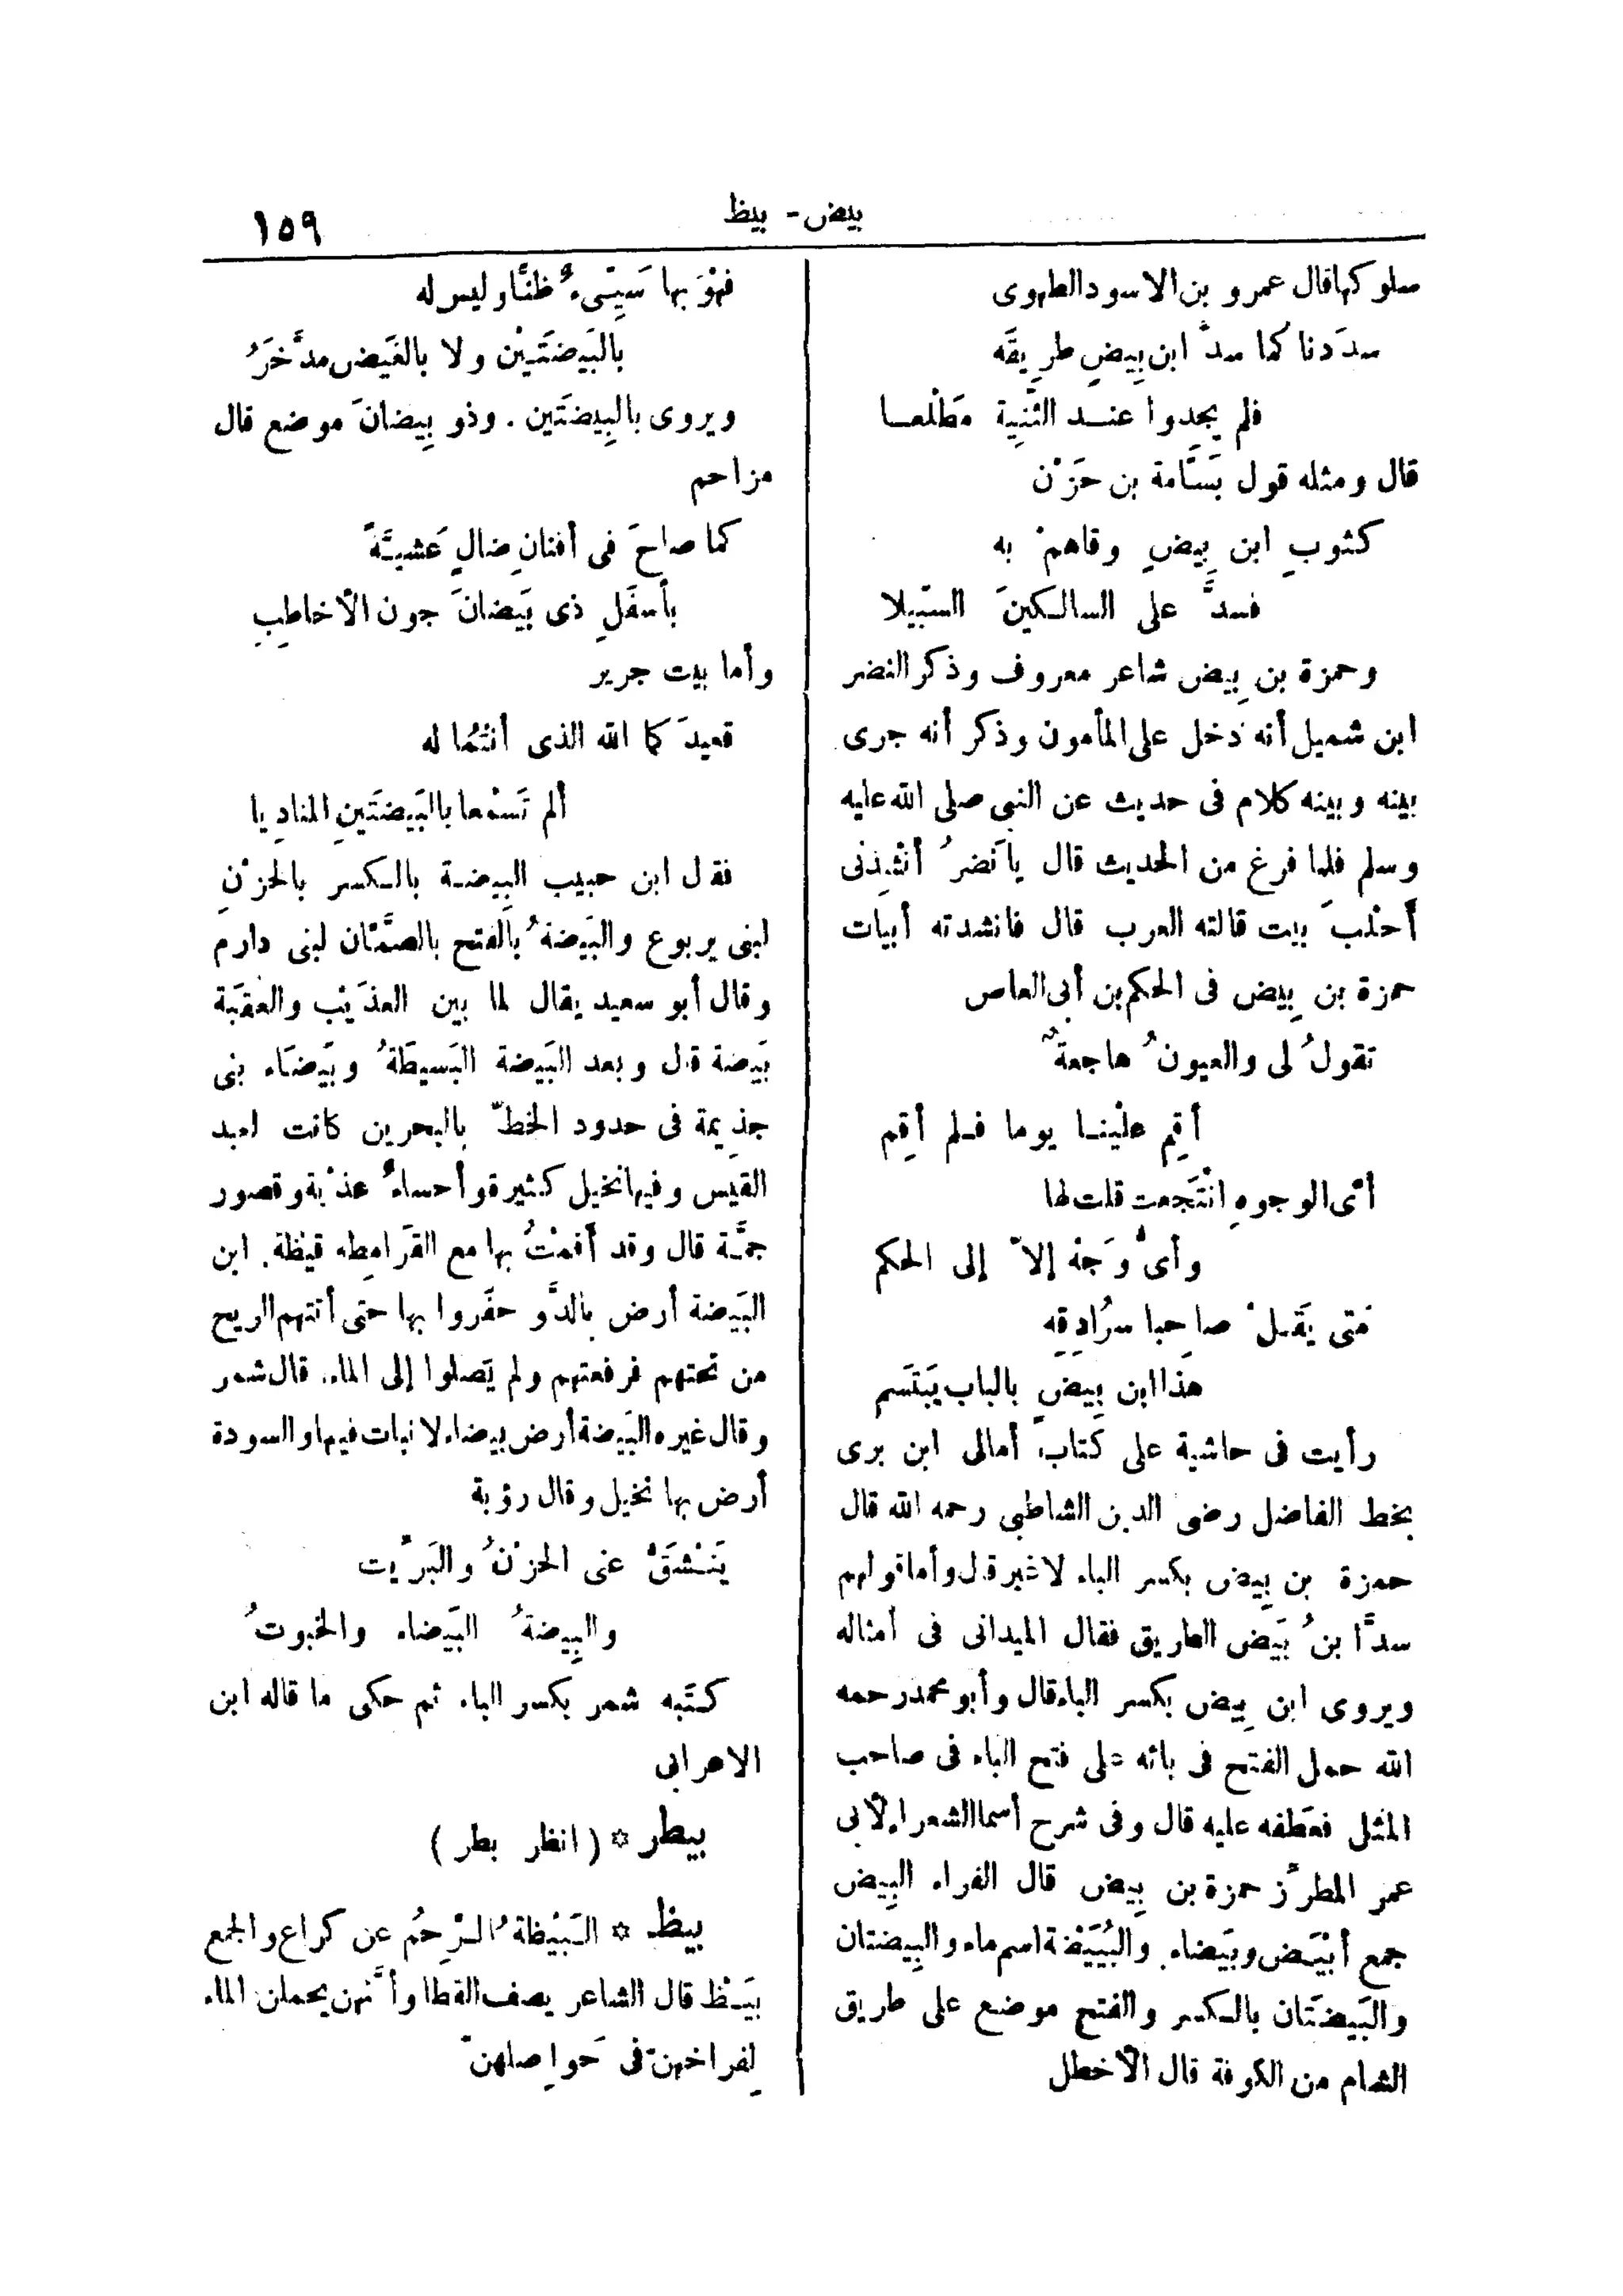 بيض - بيظ
١٥٩
سلوكها قال عمرو بن الاسود الطهوى
سدَدنا كما سدَّ ابن بِيضٍ طرِيقَه
فلم يجِدوا عنــد الثَّنِية مَطْلعــا
قال ومثله قول بَسَّامة بن حَزْن
كثوبِ ابن بِيضٍ وقاهمْ به
فسدَّ على السالـكينَ السَّبيلا
وحمزة بن بِيض شاعر معروف وذكر النضر
ابن شميل أنه دخل على المأمون وذكر أنه جرى
بينه وبينه كلام فى حديث عن النبى صلى الله عليه
وسلم فلما فرغ من الحديث قال يا نَضرُ أنْشِدْنى
أَحْلبَ بيت قالته العرب قال فانشدته أبيات
حمزة بن بِيض فى الحكم بن أبى العاص
تقولُ لى والعيونُ هاجعةٌ
أقِم علْينــا يوما فــلم أقِم
أىَّ الوجوهِ انْتَجعت قلت لها
وأىُّ وَجْهٍ إلاّ إلى الحكم
مَتى يَقــلْ صاحِبا سرُادِقِه
هذا ابن بِيضٍ بالباب يَبْتَسم
رأيت فى حاشية على كتاب أمالى ابن برى
بخط الفاضل رضى الدين الشاطبى رحمه الله قال
حمزة بن بِيض بكسر الباء لا غير قال وأما قولهم
سدَّ ابنُ بَيض الطريق فقال الميدانى فى أمثاله
ويروى ابن بِيض بكسر الباء قال وأبو محمد رحمه
الله حمل الفتح فى بائه على فتح الباء فى صاحب
المثل فعَطفه عليه قال وفى شرح أسما الشعراء لأبى
عمر المطرّز حمزة بن بِيض قال الفراء البِيض
جمع أبْيَض وبَيضاء. والبُيَيْضة اسم ماء والبِيضتان
والبَيضَتان بالـكسر والفتح موضع على طريق
الشام من الكوفة قال الأخطل
فهْوَ بها سَيِّىءٌ ظنًّا وليس له
بالبَيضَتَـيْن ولا بالغَيض مدَّخَرُ
ويروى بالبِيضَتَين. وذو بِيضانَ موضع قال
مزاحم
كما صاحَ فى أفنانِ ضالٍ عَشيَّةً
بأسفَلِ ذى بَيضانَ جون الأخاطِبِ
وأما بيت جرير
قعيدَ كما الله الذى أنتُما له
ألم تَسْمعا بالبَيضَتَينِ المنادِيا
فقال ابن حبيب البِيضـة بالـكسر بالحَزْنِ
لبنى يربوع والبَيضةُ بالفتح بالصَّمَّان لبنى دارم
وقال أبو سعيد يقال لما بين العذَيْب والعقَبة
بَيضة قال وبعد البَيضة البَسيطَةُ وبَيضَاء بنى
جذِيمة فى حدود الخطّ بالبحرين كانت لعبد
القيس وفيها نخيل كثيرة وأحساءٌ عذْبة وقصور
جمَّـة قال وقد أقمْتُ بها مع القَرامِطه قيْظة. ابن
البَيضة أرض بالدَّو حفَروا بها حتى أتتهم الريح
من تحتهم فرفعتهم ولم يَصلوا إلى الماء. قال شمر
وقال غيره البَيضة أرض بيضاء لا نبات فيها والسودة
أرض بها نخيل وقال رؤبة
يَنــْشَقّ عنى الحزْنُ والبَرِّيت
والبِيضةُ البَيضاء والخبوتُ
كـتَبه شمر بكسر الباء ثم حكى ما قاله ابن
الاعرابى
بيطر * (انظر بطر)
بيظ * الـبَيْظةُ الـرَّحِمُ عن كراع والجمع
بَيْــظ قال الشاعر يصف القطا وأنَّهن يحملن الماء
لِفراخهنَّ فى حَواصِلهنّ